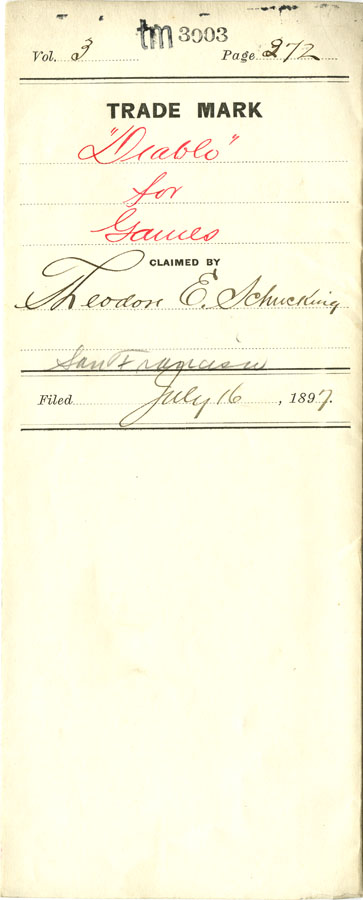 tm 3003
Vol. 3 Page 272
TRADE MARK
"Diablo"
for
Games
CLAIMED BY
Theodore E. Schucking
San Francisco
Filed July 16, 1897.